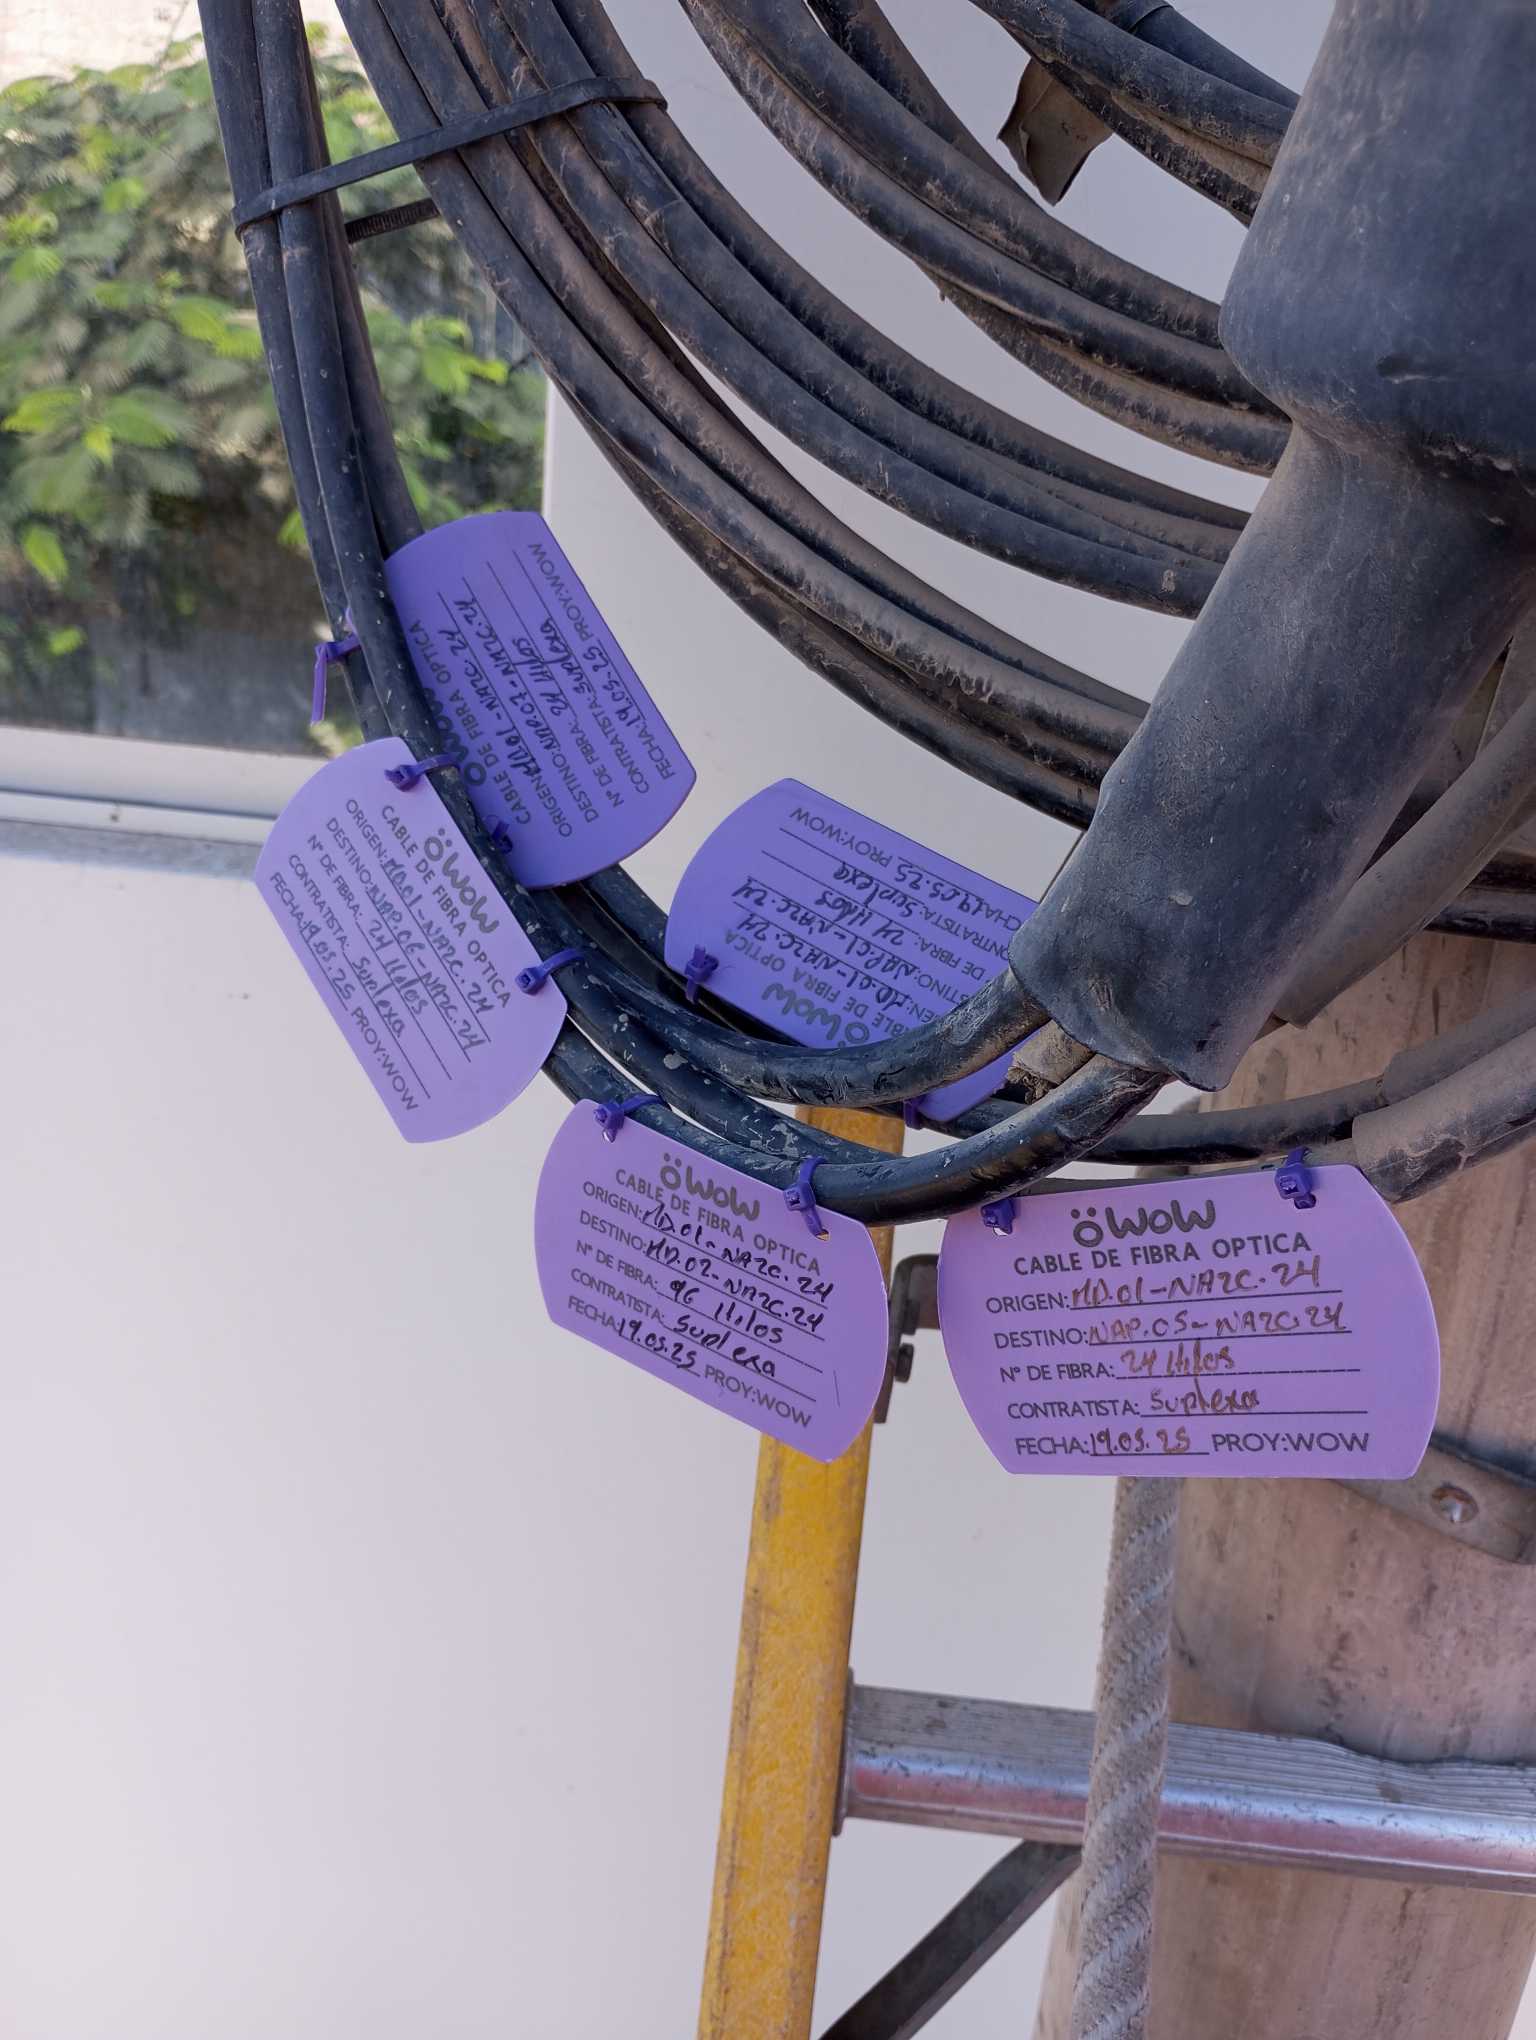 WOW
CABLE DE FIBRA OPTICA
ORIGEN: MD.01-NAZC.24
DESTINO: NAP.07-NAZC.24
N° DE FIBRA: 24 Hilos
CONTRATISTA: Suplexa
FECHA: 19.05.25 PROY:WOW
WOW
CABLE DE FIBRA OPTICA
ORIGEN: MD.01-NAZC.24
DESTINO: NAP.06-NAZC.24
N° DE FIBRA: 24 Hilos
CONTRATISTA: Suplexa
FECHA: 19.05.25 PROY:WOW
WOW
CABLE DE FIBRA OPTICA
MD.01-NAZC.24
NAP.01-NAZC.24
DE FIBRA: 24 Hilos
CONTRATISTA: Suplexa
19.05.25 PROY:WOW
WOW
CABLE DE FIBRA OPTICA
ORIGEN: MD.01-NAZC.24
DESTINO: MD.02-NAZC.24
N° DE FIBRA: 96 Hilos
CONTRATISTA: Suplexa
FECHA: 19.05.25 PROY:WOW
WOW
CABLE DE FIBRA OPTICA
ORIGEN: MD.01-NAZC.24
DESTINO: NAP.05-NAZC.24
N° DE FIBRA: 24 Hilos
CONTRATISTA: Suplexa
FECHA: 19.05.25 PROY:WOW